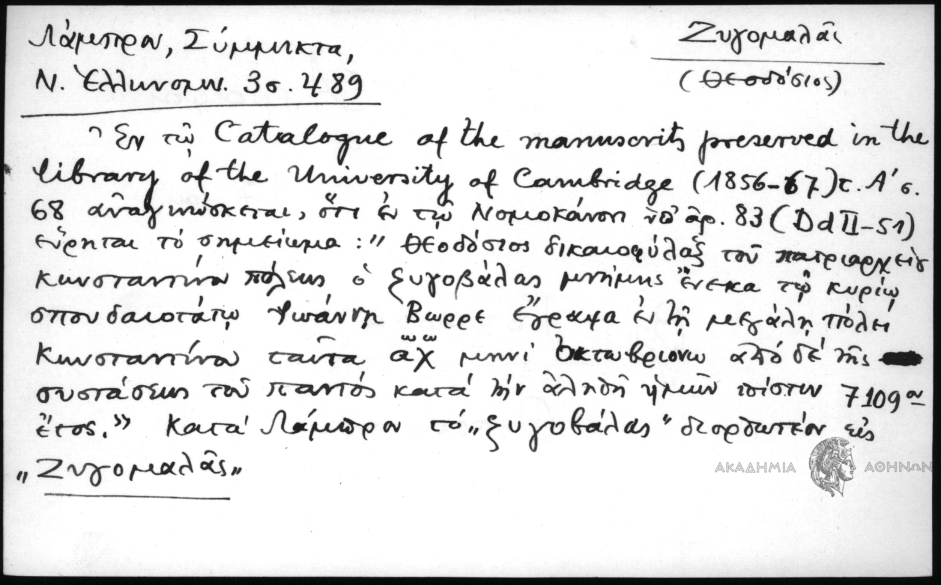 Λάμπρου, Σύμμικτα,
Ν. Ἑλληνομν. 3 σ. 489
Ζυγομαλᾶς
(Θεοδόσιος)
Ἐν τῷ Catalogue of the manuscrits preserved in the
library of the University of Cambridge (1856-67) τ. Α' σ.
68 ἀναγινώσκεται, ὅτι ἐν τῷ Νομοκάνονι ὑπ' ἀρ. 83 (Dd II-51)
εὕρηται τὸ σημείωμα: „Θεοδόσιος δικαιοφύλαξ τοῦ πατριαρχείου
Κωνσταντίνου πόλεως ὁ ξυγοβάλας μνήμης ἕνεκα τῷ κυρίῳ
σπουδαιοτάτῳ Ἰωάννῃ Βωρρε ἔγραψα ἐν τῇ μεγάλῃ πόλει
Κωνσταντίνου ταῦτα ᾳχ μηνὶ ὀκτωβρίῳ ἀπὸ δὲ τῆς
συστάσεως τοῦ παντὸς κατὰ τὴν ἀληθῆ ἡμῶν πίστιν 7109ον
ἔτος.” Κατὰ Λάμπρον τὸ „ξυγοβάλας” διορθωτέον εἰς
„Ζυγομαλᾶς”
ΑΚΑΔΗΜΙΑ ΑΘΗΝΩΝ